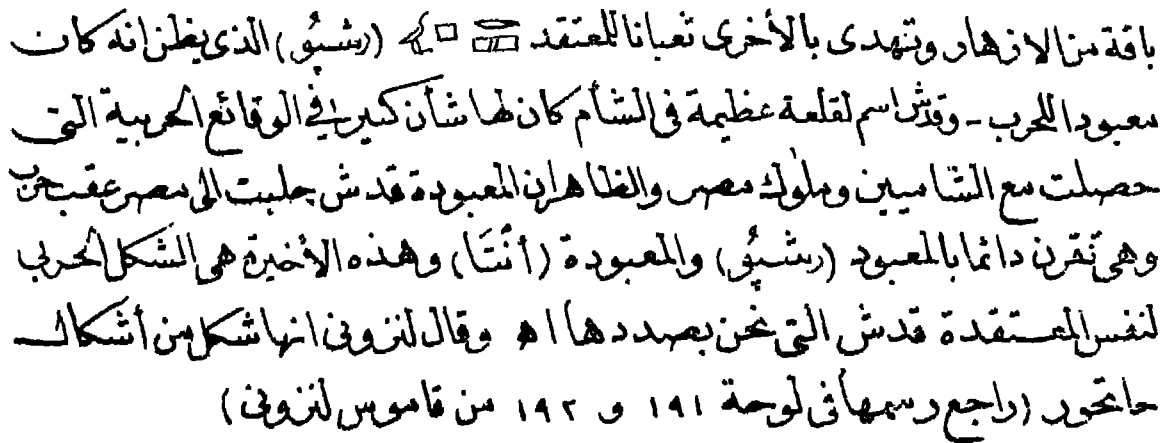 باقة من الازهار وتهدى بالأخرى ثعبانا للمعتقد (رشبُو) الذى يظن انه كان
معبودا للحرب - وقدش اسم لقلعة عظيمة فى الشأم كان لها شأن كبير فى الوقائع الحربية التى
حصلت مع الشاميين وملوك مصر والظاهر ان المعبودة قدش جلبت الى مصر عقب حرب
وهى تقرن دائما بالمعبود (رشبُو) والمعبودة (أنْتَا) وهذه الأخيرة هى الشكل الحربى
لنفس المعتقدة قدش التى نحن بصددها اه وقال لنزونى انها شكل من أشكال
حاتحور (راجع رسمها فى لوحة ١٩١ و ١٩٢ من قاموس لنزونى)